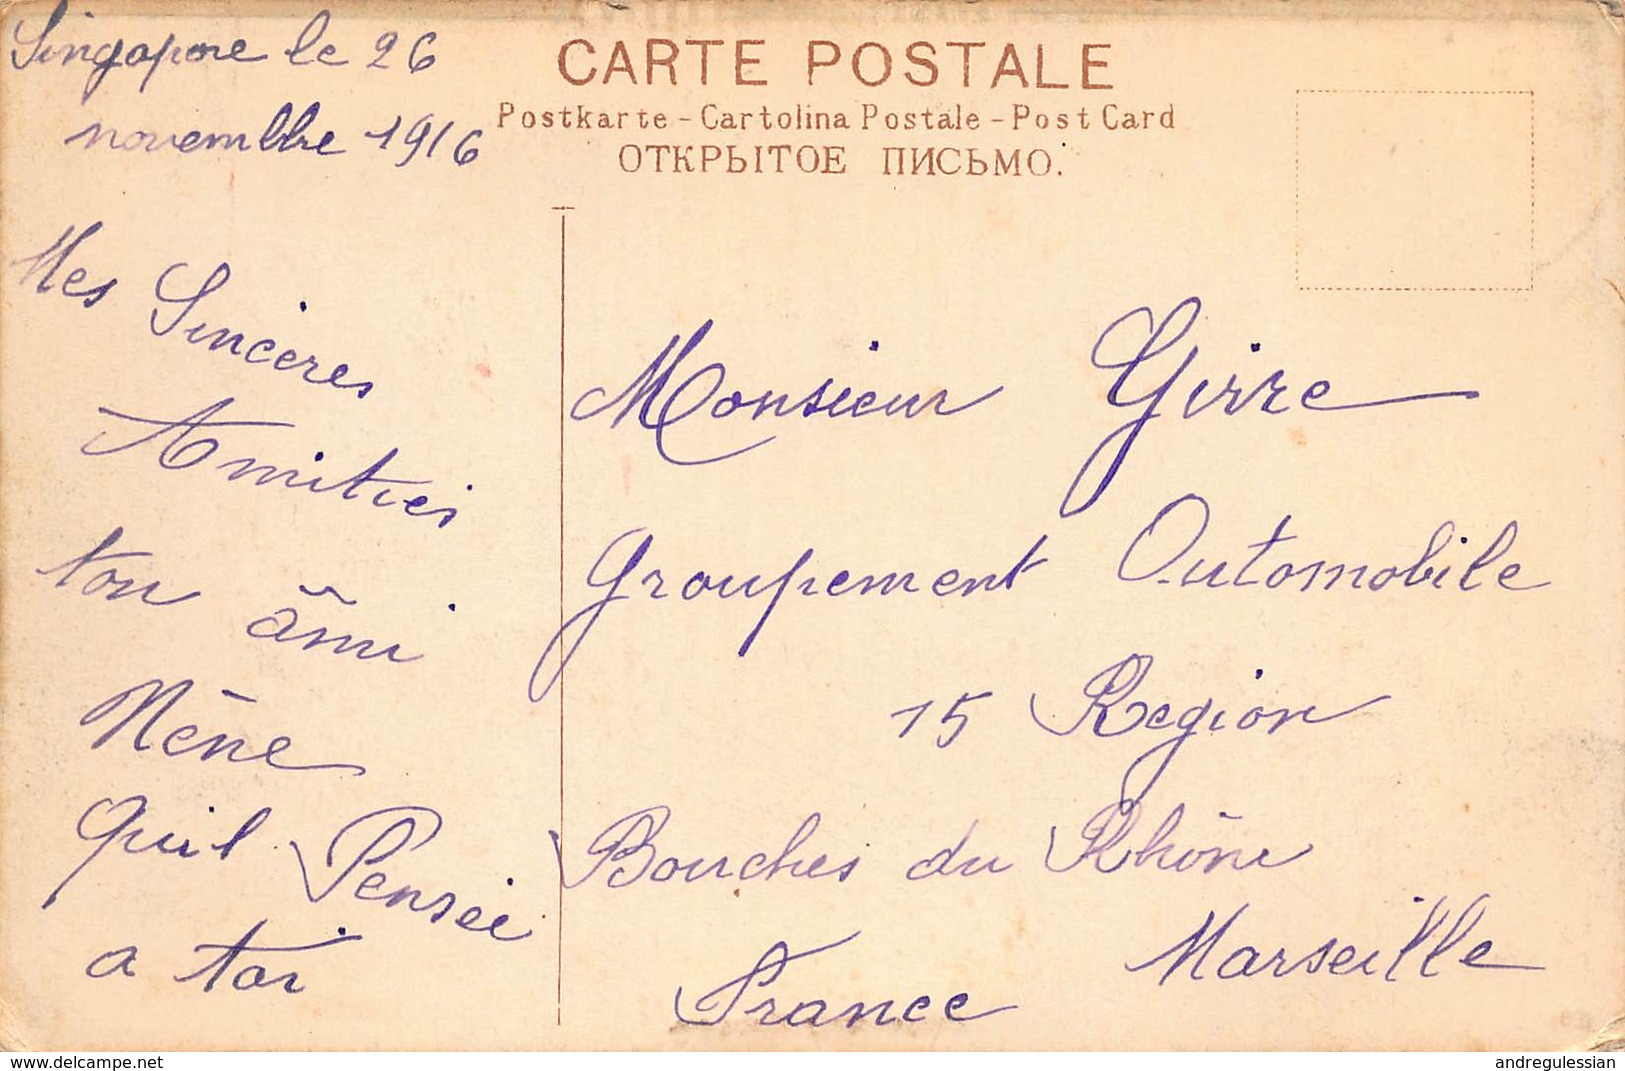 Singapore le 26
novembbre 1916
CARTE POSTALE
Postkarte - Cartolina Postale - Post Card
ОТКРЫТОЕ ПИСЬМО.
Mes Sincères
Amitiés
ton âmi
Nène
quil Pensée
a toi
Monsieur Girre
Groupement Automobile
15 Region
Bouches du Rhône
Marseille
France
www.delcampe.net
andregulessian